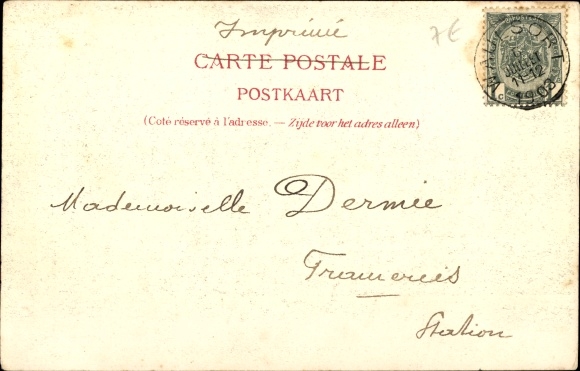 Imprimé
7€
CARTE POSTALE
POSTKAART
(Coté réservé à l'adresse. — Zijde voor het adres alleen)
WAULSORT
11-12
1903
Mademoiselle Dermée
Frameries
Station